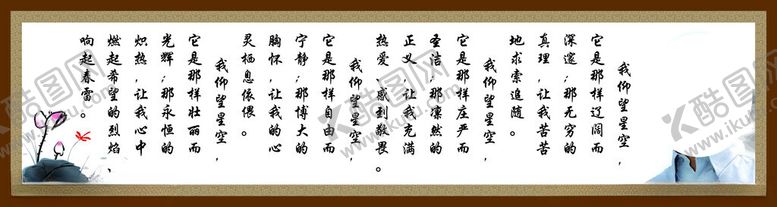 我仰望星空,
它是那样辽阔而
深邃;那无穷的
真理,让我苦苦
地求索追随。
我仰望星空,
它是那样庄严而
圣洁;那凛然的
正义,让我充满
热爱、感到敬畏。
我仰望星空,
它是那样自由而
宁静;那博大的
胸怀,让我的心
灵栖息依偎。
我仰望星空,
它是那样壮丽而
光辉;那永恒的
炽热,让我心中
燃起希望的烈焰,
响起春雷。
酷图网